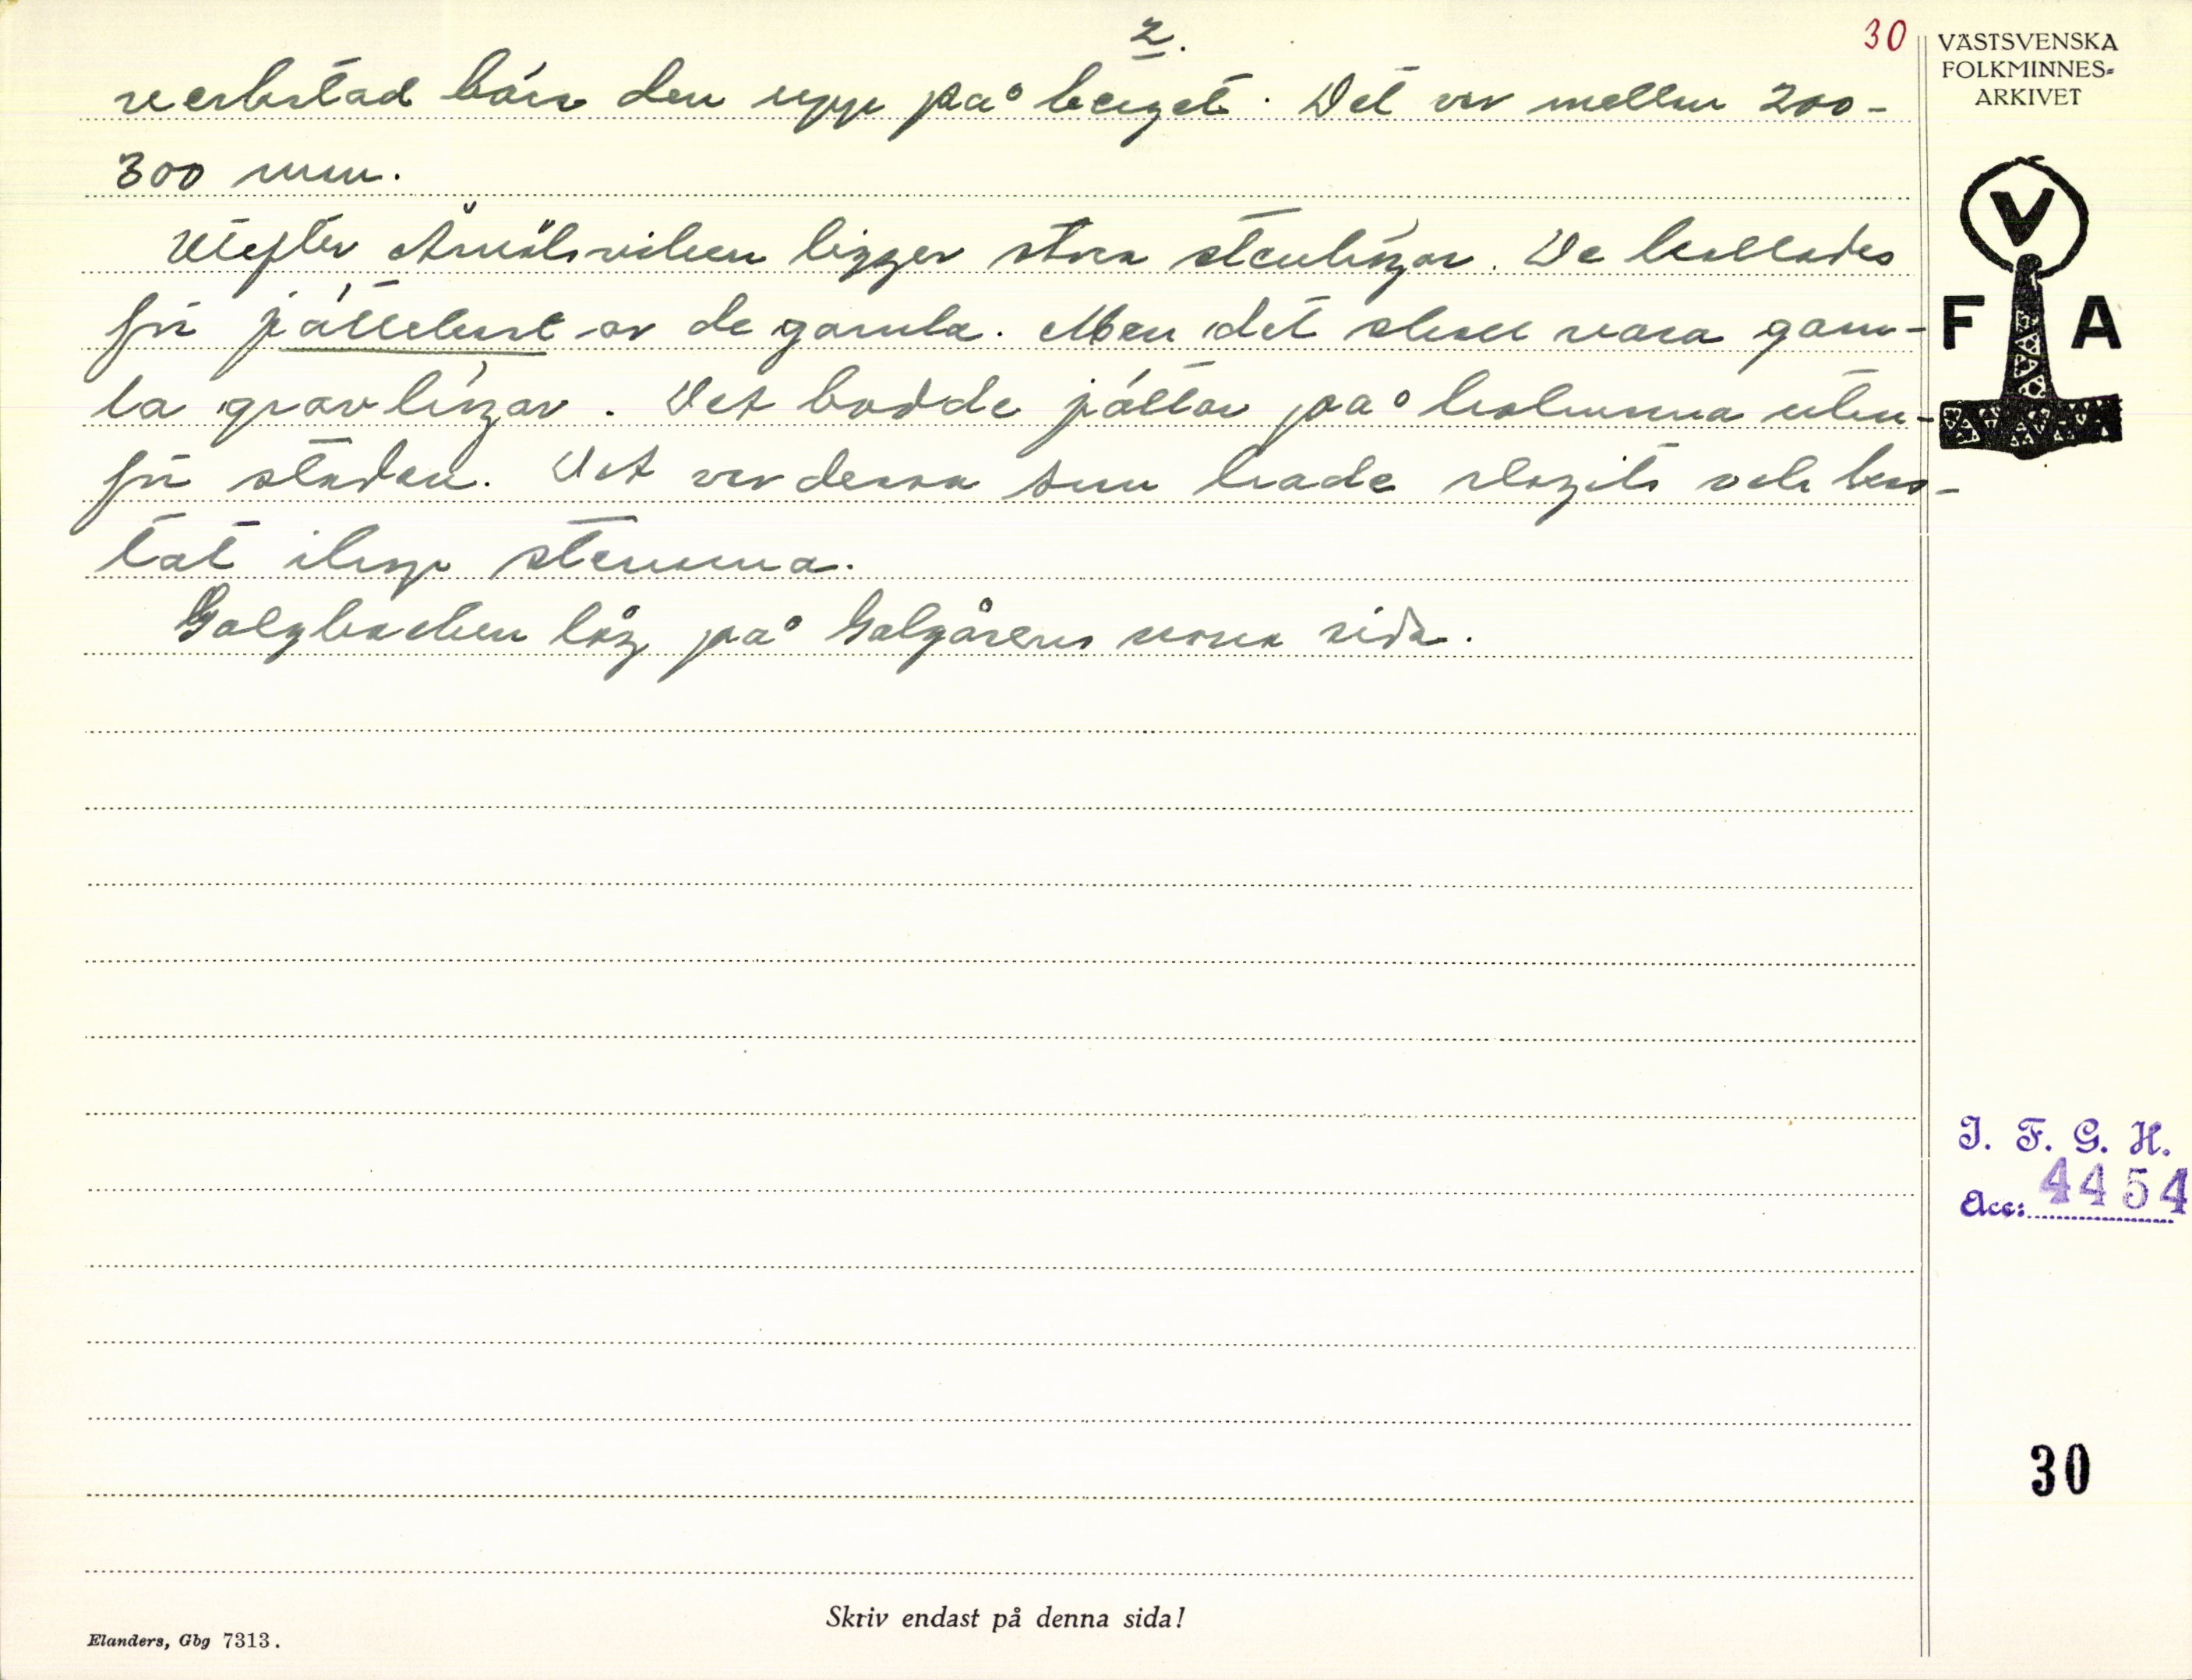 2.
30
verkstad bära den upp på berget. Det var mellan 200-
300 man.
Utefter Åmålsviken ligger stora stenhögar. De kallades
för jättekast av de gamla. Men det skall vara gam-
la gravhögar. Det bodde jättar på holmarna utan-
för staden. Det var dessa som hade slagits och kas-
tat ihop stenarna.
Galgbacken låg på Galgåsens norra sida.
VÄSTSVENSKA
FOLKMINNES-
ARKIVET
V
F A
I. F. G. H.
Acc: 4454
30
Skriv endast på denna sida!
Elanders, Gbg 7313.